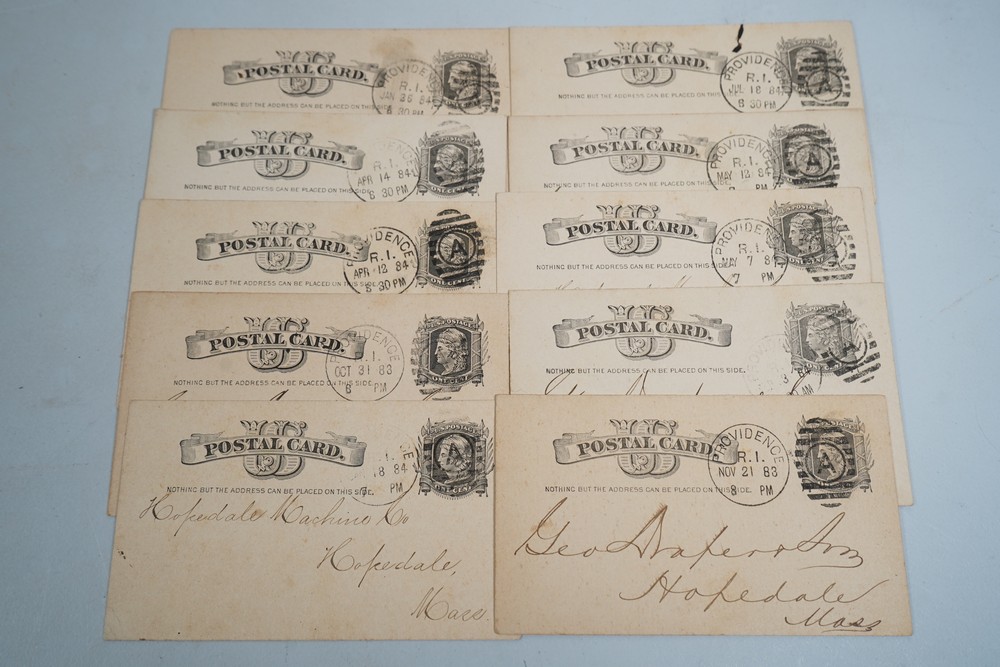 POSTAL CARD.
NOTHING BUT THE ADDRESS CAN BE PLACED ON THIS
PROVIDENCE
R.I.
JAN 26 84
8 30 PM
POSTAL CARD.
NOTHING BUT THE ADDRESS CAN BE PLACED
PROVIDENCE
R.I.
JUL 18 84
8 30 PM
A
POSTAL CARD.
NOTHING BUT THE ADDRESS CAN BE PLACED ON THIS SIDE.
R.I.
APR 14 84
8 30 PM
ONE CENT
POSTAL CARD.
NOTHING BUT THE ADDRESS CAN BE PLACED ON THIS SIDE.
PROVIDENCE
R.I.
MAY 12 84
PM
A
POSTAL CARD.
NOTHING BUT THE ADDRESS CAN BE PLACED ON THIS
PROVIDENCE
R.I.
APR 12 84
8 30 PM
A
ONE CENT
POSTAL CARD.
NOTHING BUT THE ADDRESS CAN BE PLACED ON THIS SIDE.
PROVIDENCE
R.I.
MAY 7 8
7 PM
U.S. POSTAGE
POSTAL CARD.
NOTHING BUT THE ADDRESS CAN BE PLACED ON THIS SIDE.
PROVIDENCE
R.I.
OCT 31 83
8 PM
U.S. POSTAGE
ONE CENT
POSTAL CARD.
NOTHING BUT THE ADDRESS CAN BE PLACED ON THIS SIDE.
3 84
AM
U.S. POSTAGE
POSTAL CARD.
NOTHING BUT THE ADDRESS CAN BE PLACED ON THIS SIDE.
8 84
PM
A
U.S. POSTAGE
ONE CENT
Hopedale Machine Co
Hopedale,
Mass.
POSTAL CARD.
NOTHING BUT THE ADDRESS CAN BE PLACED ON THIS SIDE.
PROVIDENCE
R.I.
NOV 21 83
8 PM
A
Geo Draper & Son
Hopedale
Mass